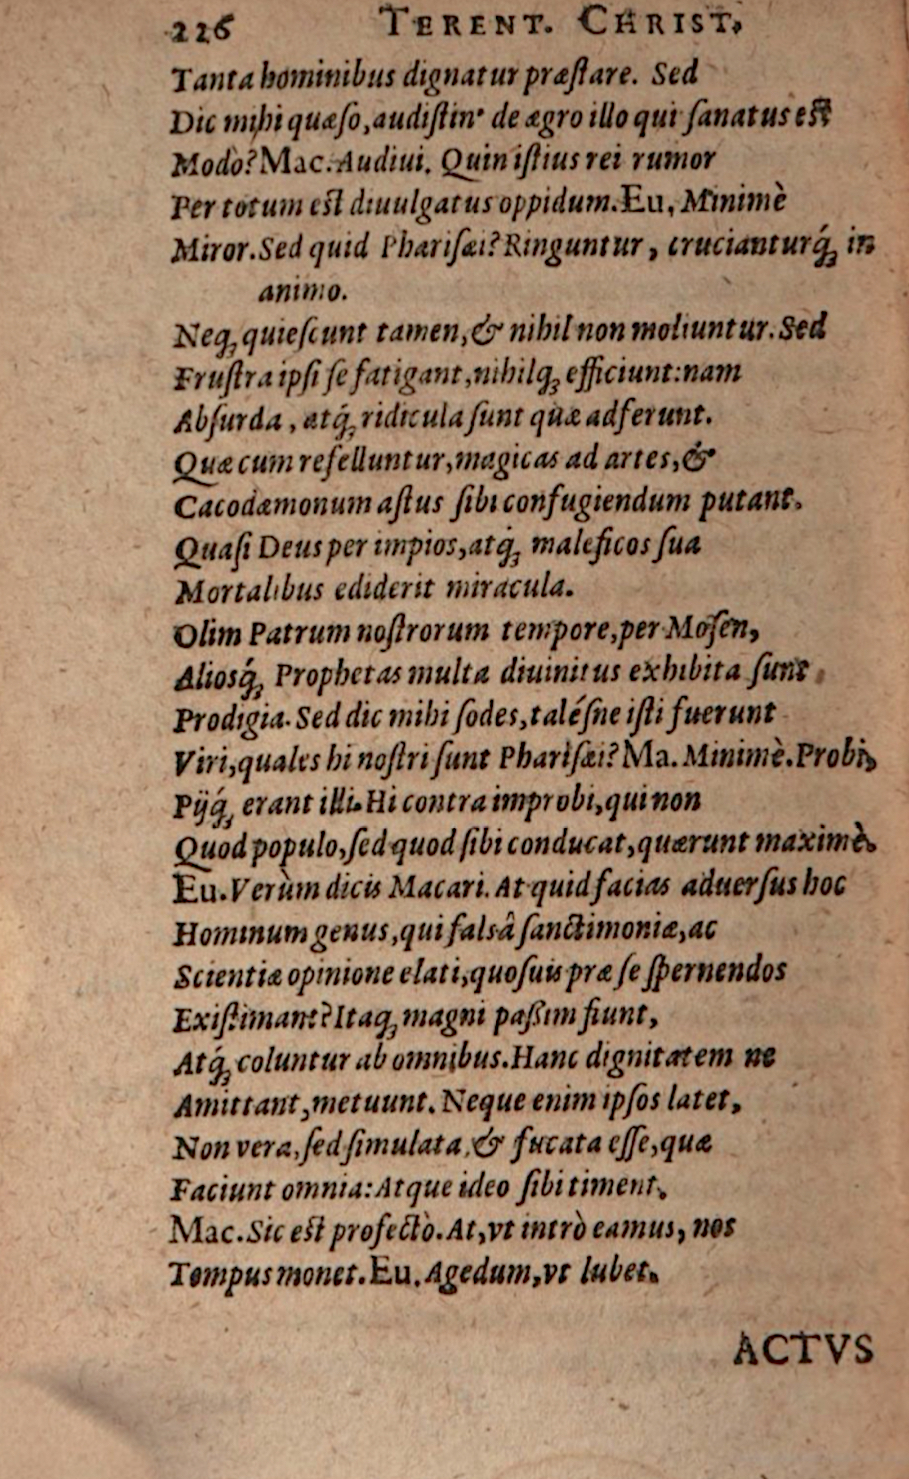 226 TERENT. CHRIST.
Tanta hominibus dignatur præſtare. Sed
Dic mihi quæſo, audiſtin' de ægro illo qui ſanatus eſt
Modò? Mac. Audiui. Quin iſtius rei rumor
Per totum eſt diuulgatus oppidum. Eu. Minimè
Miror. Sed quid Phariſæi? Ringuntur, crucianturq́ꝫ in
animo.
Neqꝫ quieſcunt tamen, & nihil non moliuntur. Sed
Fruſtra ipſi ſe fatigant, nihilqꝫ efficiunt: nam
Abſurda, atq́ꝫ ridicula ſunt quæ adferunt.
Quæ cum refelluntur, magicas ad artes, &
Cacodæmonum aſtus ſibi confugiendum putant.
Quaſi Deus per impios, atq́ꝫ maleficos ſua
Mortalibus ediderit miracula.
Olim Patrum noſtrorum tempore, per Moſen,
Aliosq́ꝫ Prophetas multa diuinitus exhibita ſunt
Prodigia. Sed dic mihi ſodes, taléſne iſti fuerunt
Viri, quales hi noſtri ſunt Phariſæi? Ma. Minimè. Probi,
Pijq́ꝫ erant illi. Hi contra improbi, qui non
Quod populo, ſed quod ſibi conducat, quærunt maximè.
Eu. Verùm dicis Macari. At quid facias aduerſus hoc
Hominum genus, qui falsâ ſanctimoniæ, ac
Scientiæ opinione elati, quoſuis præ ſe ſpernendos
Exiſtimant? Itaqꝫ magni paßim fiunt,
Atq́ꝫ coluntur ab omnibus. Hanc dignitatem ne
Amittant, metuunt. Neque enim ipſos latet,
Non vera, ſed ſimulata, & fucata eſſe, quæ
Faciunt omnia: Atque ideo ſibi timent.
Mac. Sic eſt profectò. At, vt intrò eamus, nos
Tempus monet. Eu. Agedum, vt lubet.
ACTVS